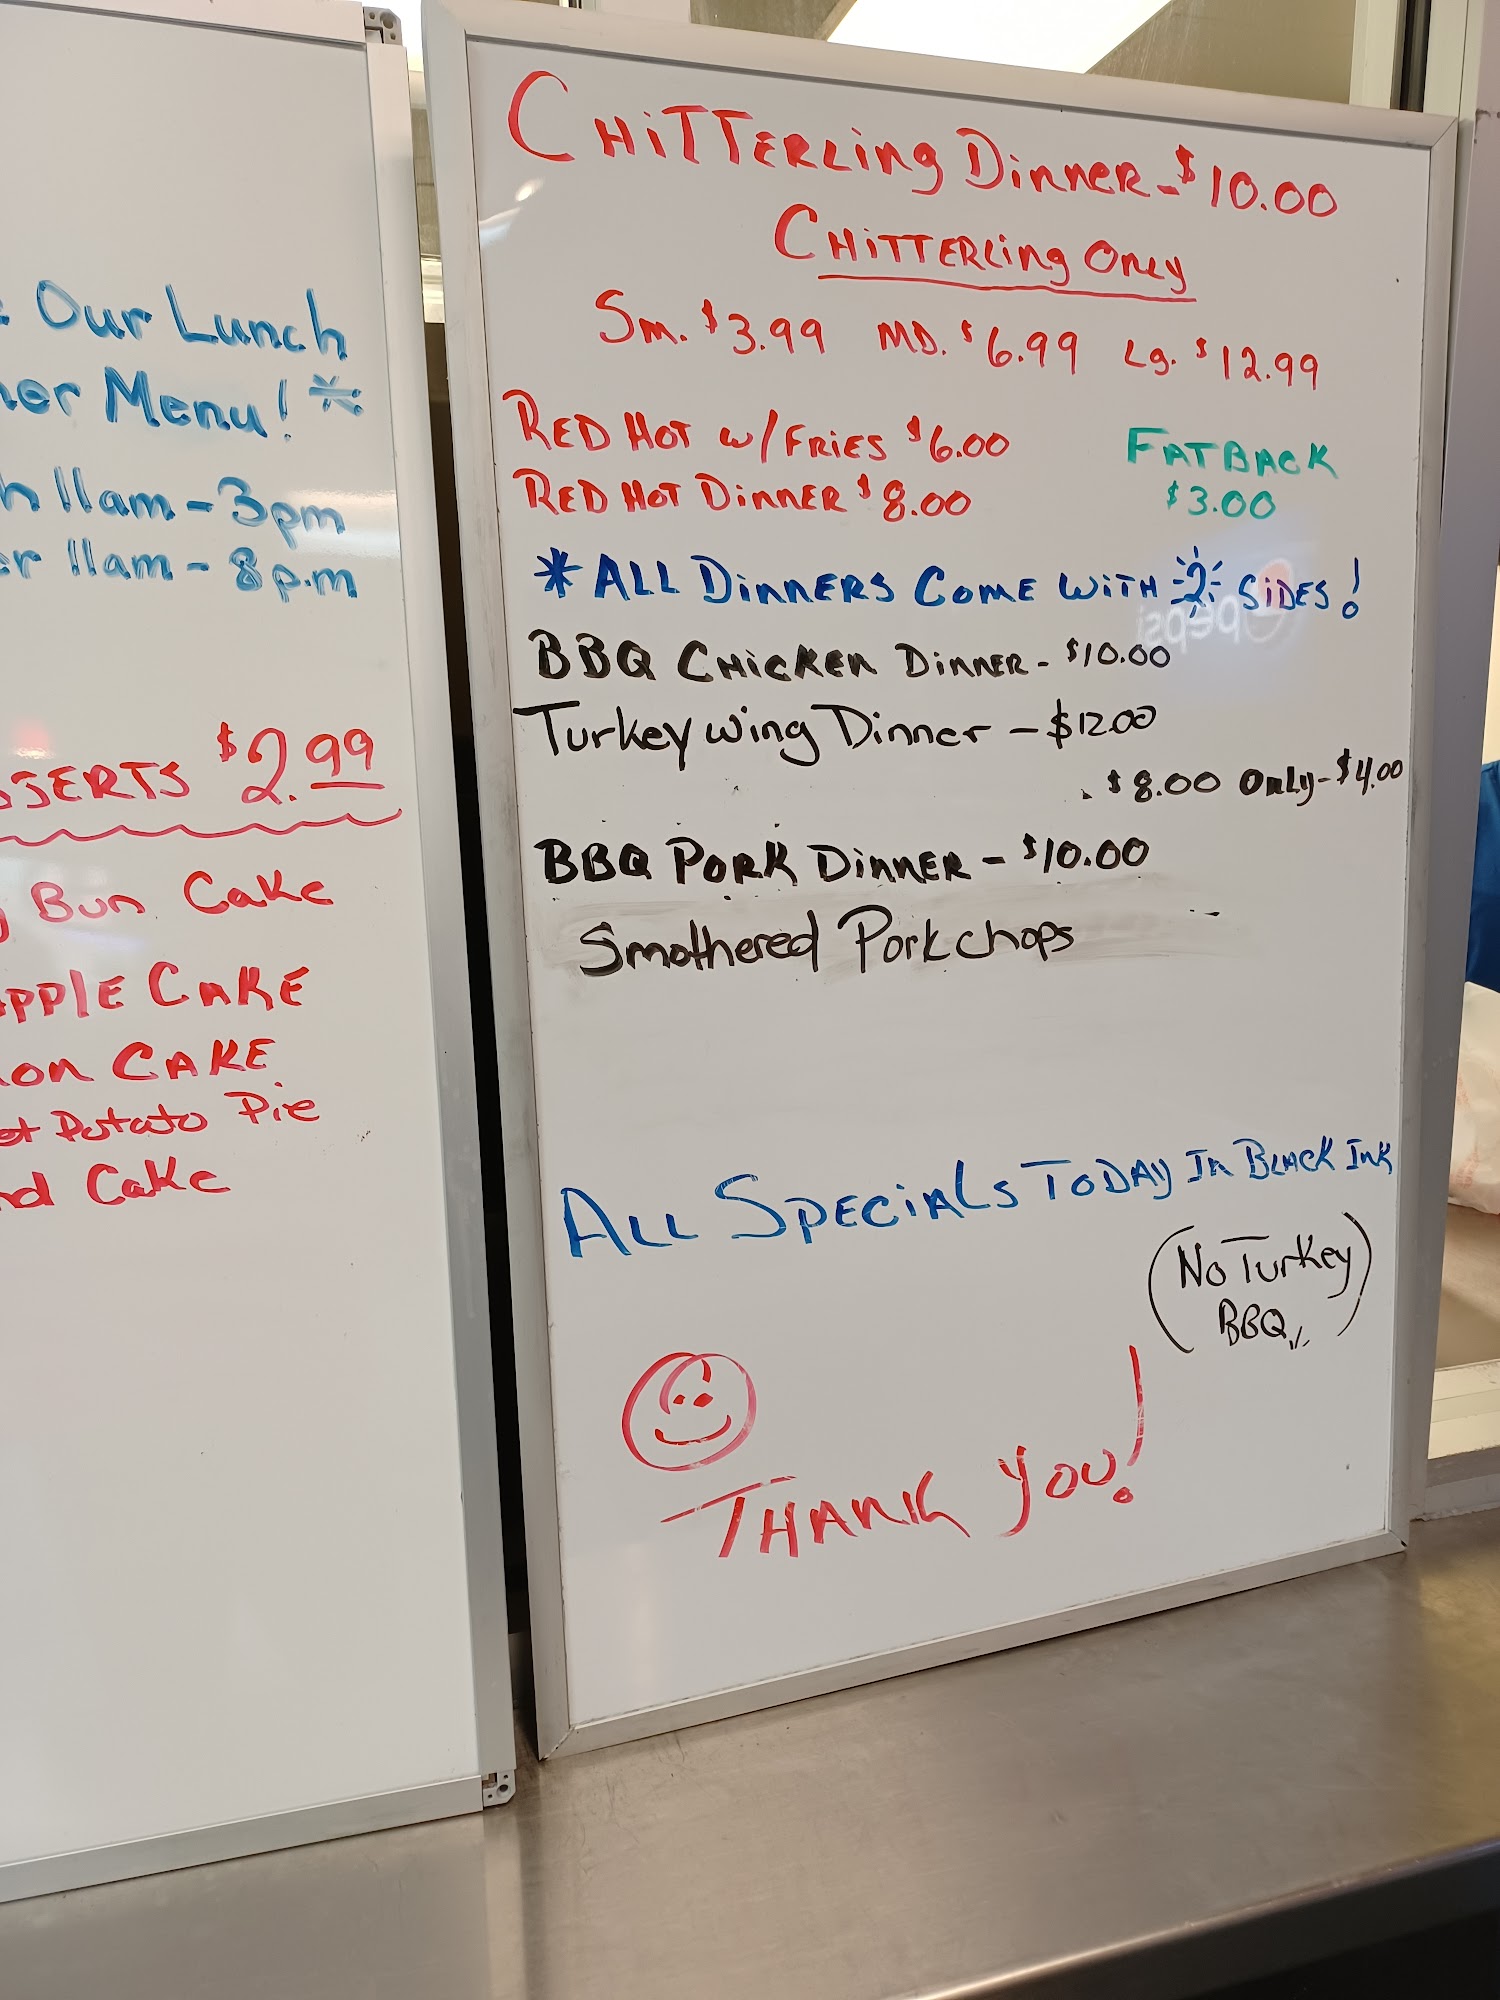 Our Lunch
Menu! *
11am - 3pm
11am - 8p.m
$2.99
Bun Cake
CAKE
CAKE
Potato Pie
Cake
CHITTERLING DINNER - $10.00
CHITTERLING ONLY
Sm. $3.99 MD. $6.99 Lg. $12.99
RED HOT w/FRIES $6.00
RED HOT DINNER $8.00
FATBACK
$3.00
*ALL DINNERS COME WITH 2 SIDES!
pepsi
BBQ CHICKEN DINNER - $10.00
Turkey wing Dinner - $12.00
$8.00 ONLY - $4.00
BBQ PORK DINNER - $10.00
Smothered Porkchops
ALL SPECIALS TODAY IN BLACK INK
(No Turkey
BBQ)
THANK YOU!